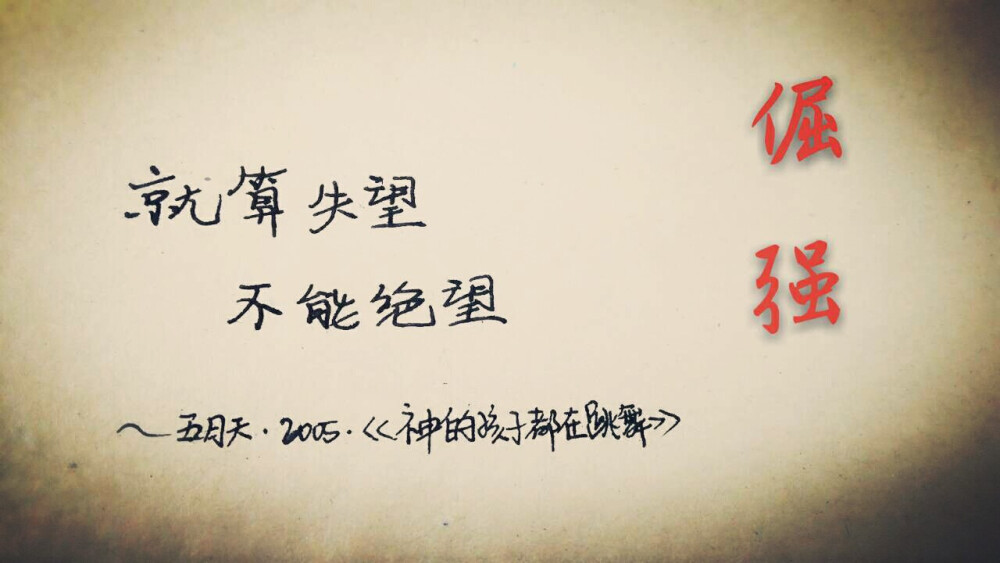 倔强
就算失望
不能绝望
～五月天·2005·<<神的孩子都在跳舞>>